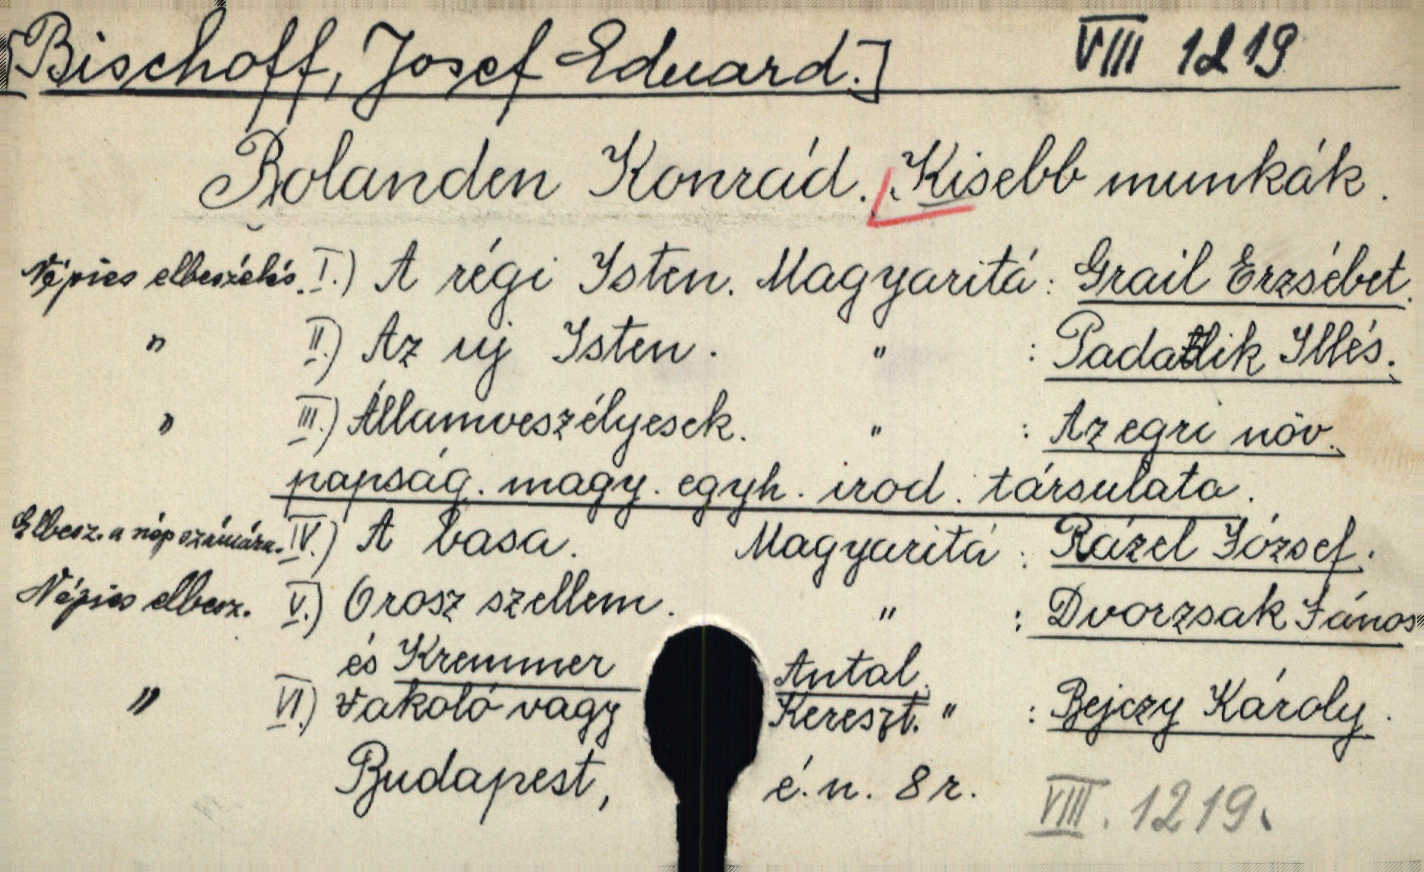 [Bischoff, Josef Eduard.] VIII 1219
Bolanden Konrád. Kisebb munkák.
Népies elbeszélés. I.) A régi Isten. Magyaritá: Grail Erzsébet.
" II.) Az uj Isten. " : Padatlik Illés.
" III.) Államveszélyesek. " : Az egri növ.
papság. magy. egyh. irod. társulata.
Elbesz. a nép számára. IV.) A basa. Magyaritá: Rázel József.
Népies elbesz. V.) Orosz szellem. " : Dvorzsak János
és Kremmer Antal.
" VI.) Vakoló vagy Kereszt. " : Bejczy Károly.
Budapest, é. n. 8 r.
VIII. 1219.